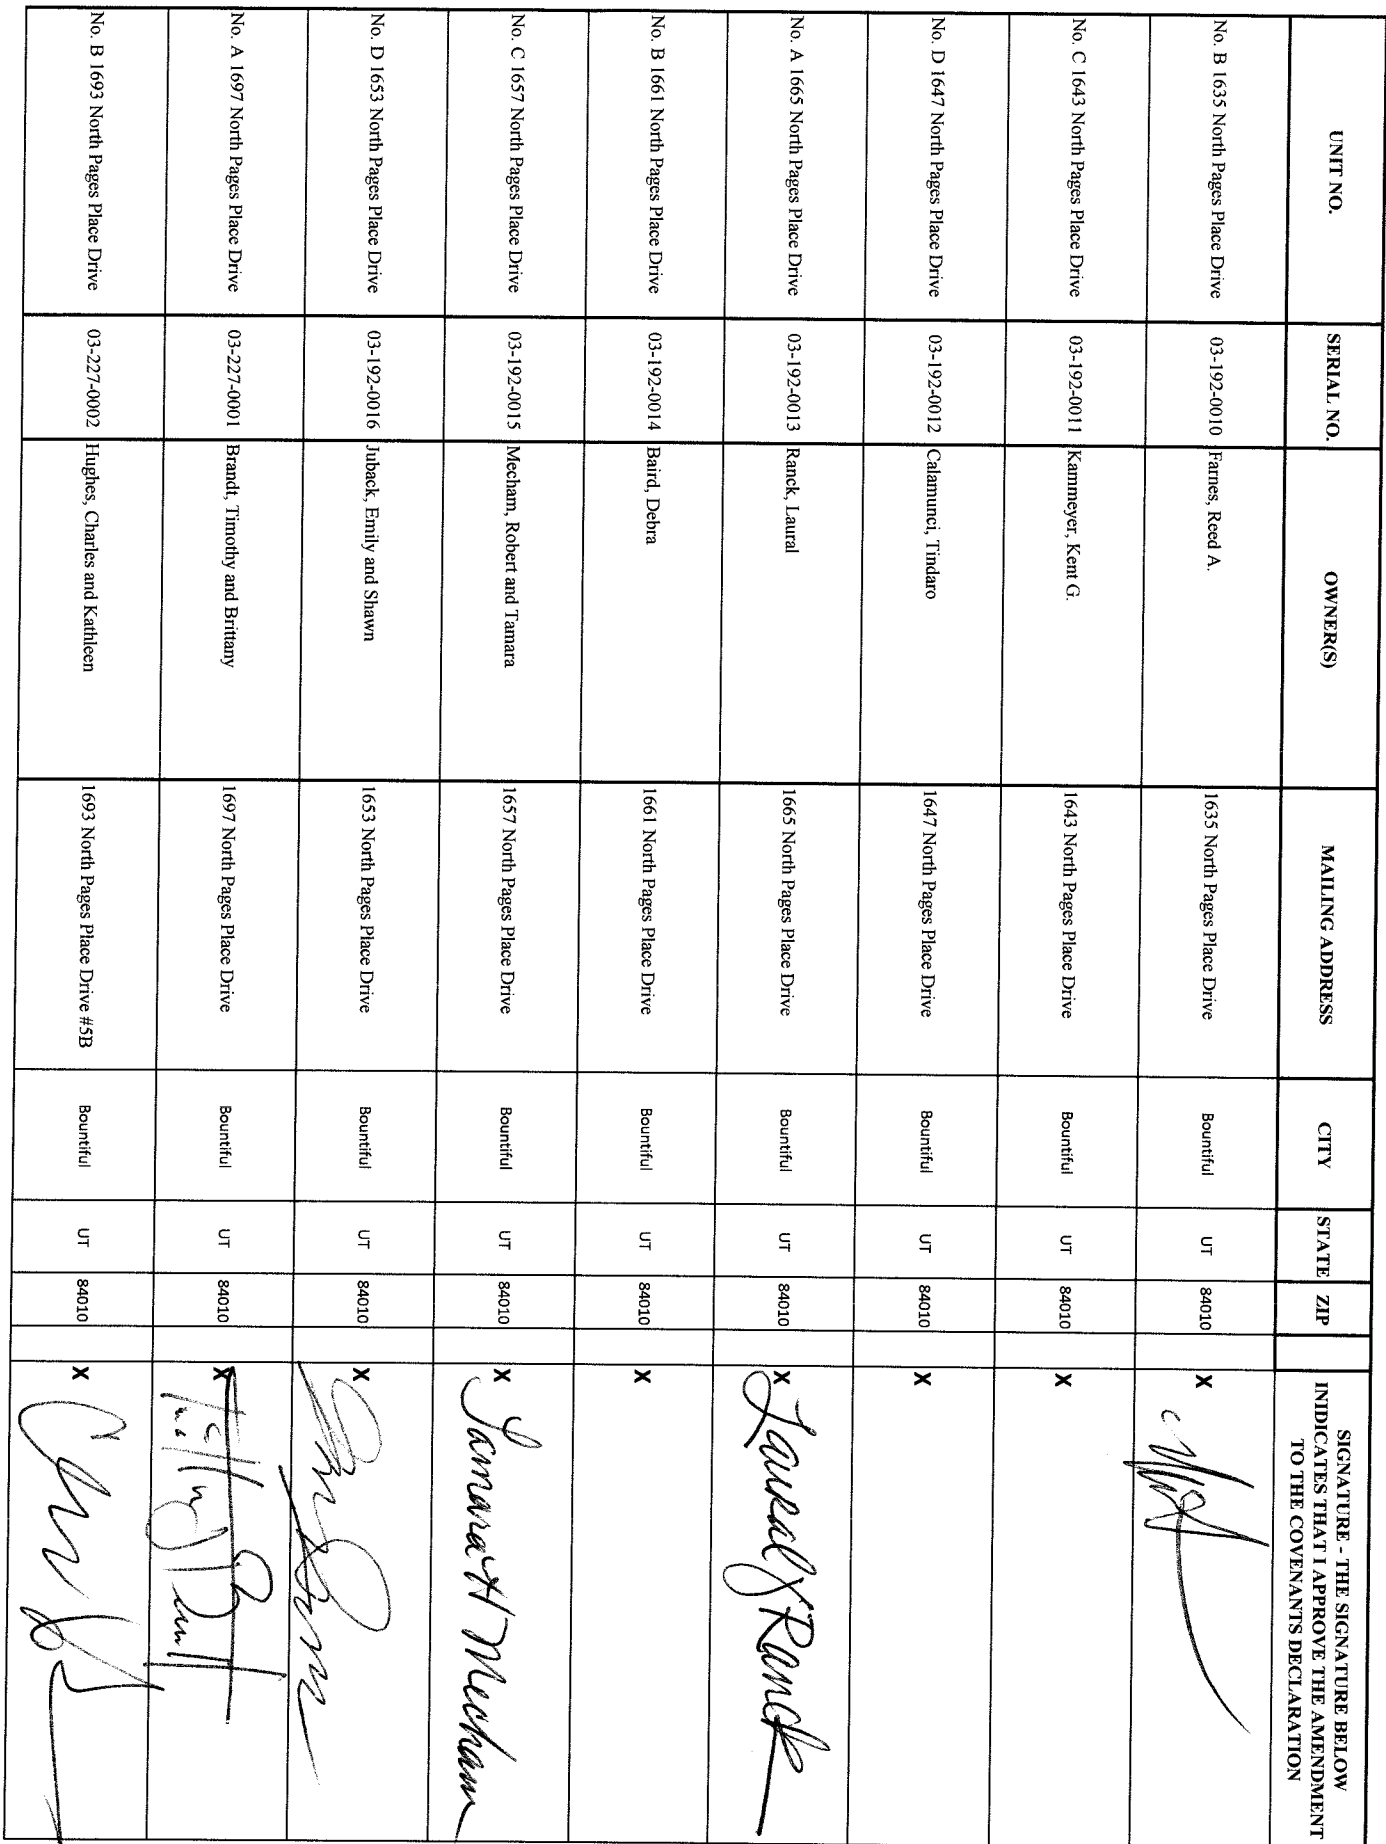 UNIT NO. SERIAL NO. OWNER(S) MAILING ADDRESS CITY STATE ZIP SIGNATURE - THE SIGNATURE BELOW
INIDICATES THAT I APPROVE THE AMENDMENT
TO THE COVENANTS DECLARATION
No. B 1635 North Pages Place Drive 03-192-0010 Farnes, Reed A. 1635 North Pages Place Drive Bountiful UT 84010 X
No. C 1643 North Pages Place Drive 03-192-0011 Kammeyer, Kent G. 1643 North Pages Place Drive Bountiful UT 84010 X
No. D 1647 North Pages Place Drive 03-192-0012 Calamunci, Tindaro 1647 North Pages Place Drive Bountiful UT 84010 X
No. A 1665 North Pages Place Drive 03-192-0013 Ranck, Laural 1665 North Pages Place Drive Bountiful UT 84010 X Laural J Ranck
No. B 1661 North Pages Place Drive 03-192-0014 Baird, Debra 1661 North Pages Place Drive Bountiful UT 84010 X
No. C 1657 North Pages Place Drive 03-192-0015 Mecham, Robert and Tamara 1657 North Pages Place Drive Bountiful UT 84010 X Tamara H Mecham
No. D 1653 North Pages Place Drive 03-192-0016 Juback, Emily and Shawn 1653 North Pages Place Drive Bountiful UT 84010 X
No. A 1697 North Pages Place Drive 03-227-0001 Brandt, Timothy and Brittany 1697 North Pages Place Drive Bountiful UT 84010 X
No. B 1693 North Pages Place Drive 03-227-0002 Hughes, Charles and Kathleen 1693 North Pages Place Drive #5B Bountiful UT 84010 X